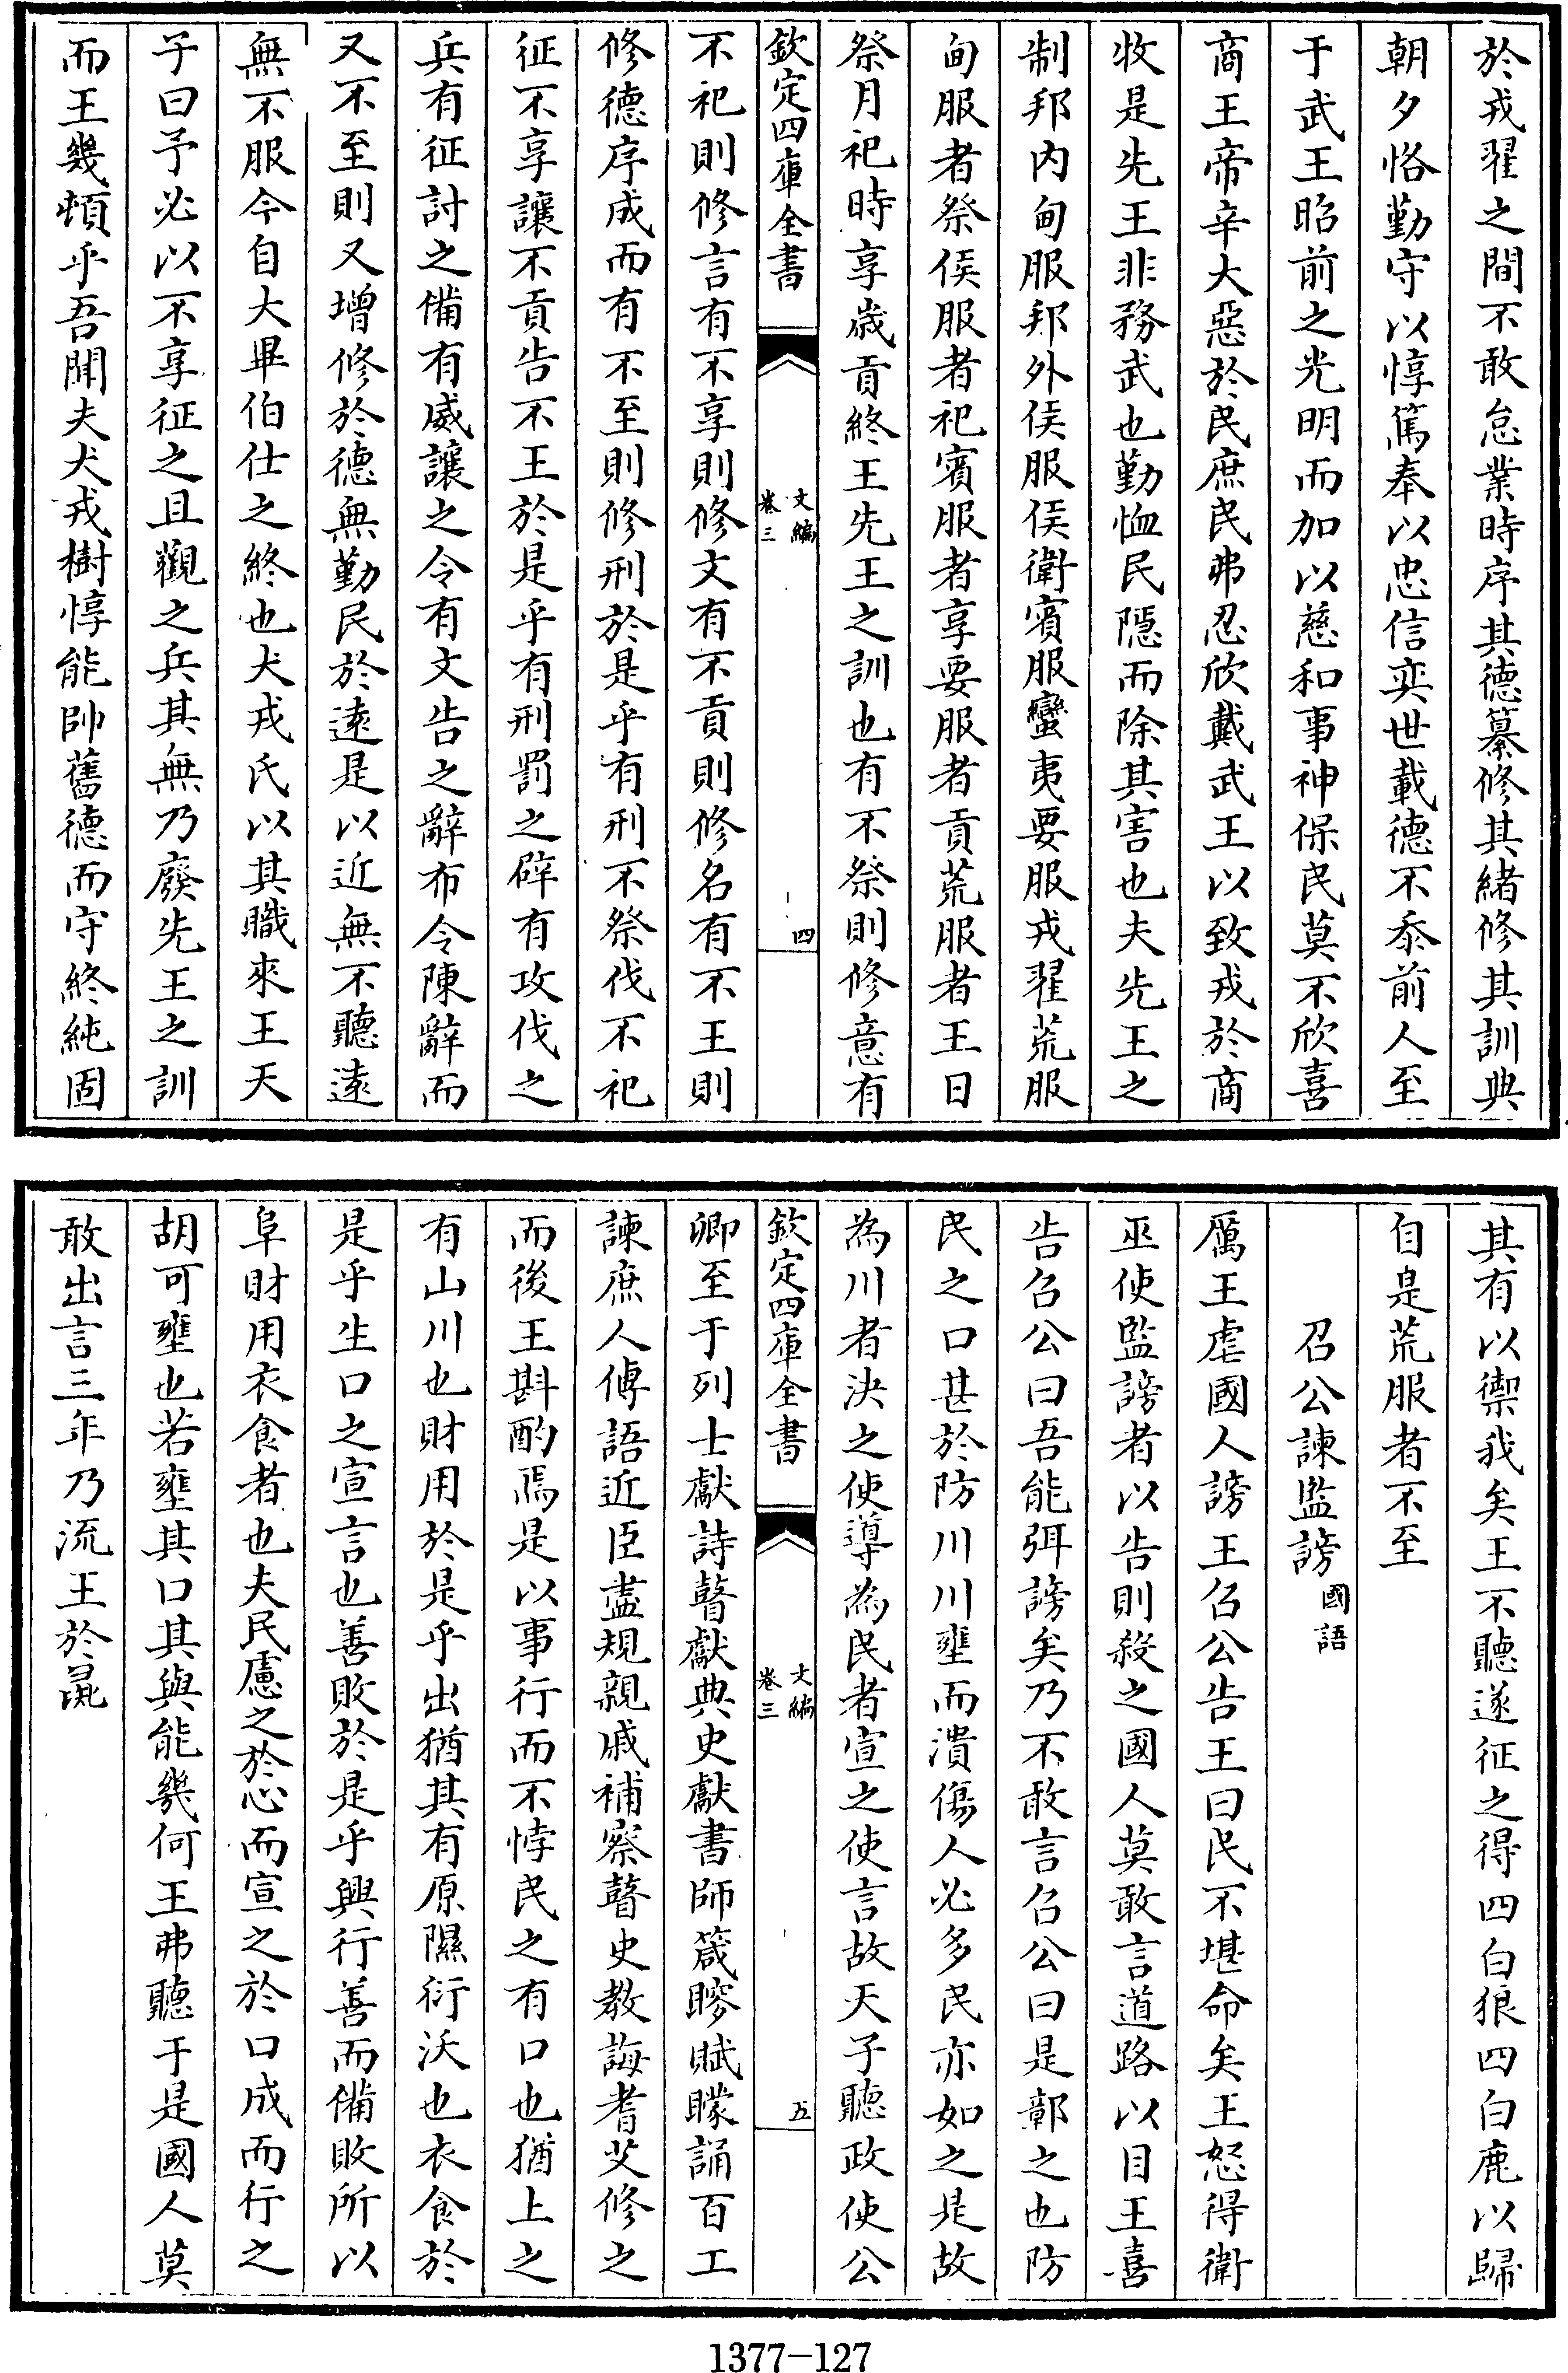 於戎翟之間不敢怠業時序其德纂修其緒修其訓典
朝夕恪勤守以惇篤奉以忠信奕世載德不忝前人至
于武王昭前之光明而加以慈和事神保民莫不欣喜
商王帝辛大惡於民庶民弗忍欣戴武王以致戎於商
牧是先王非務武也勤恤民隱而除其害也夫先王之
制邦内甸服邦外侯服侯衛賓服蠻夷要服戎翟荒服
甸服者祭侯服者祀賓服者享要服者貢荒服者王日
祭月祀時享歲貢終王先王之訓也有不祭則修意有
欽定四庫全書
文編
卷三
四
不祀則修言有不享則修文有不貢則修名有不王則
修德序成而有不至則修刑於是乎有刑不祭伐不祀
征不享讓不貢告不王於是乎有刑罰之辟有攻伐之
兵有征討之備有威讓之令有文告之辭布令陳辭而
又不至則又增修於德無勤民於遠是以近無不聽遠
無不服今自大畢伯仕之終也犬戎氏以其職來王天
子曰予必以不享征之且觀之兵其無乃廢先王之訓
而王幾頓乎吾聞夫犬戎樹惇能帥舊德而守終純固
其有以禦我矣王不聽遂征之得四白狼四白鹿以歸
自是荒服者不至
召公諫監謗國語
厲王虐國人謗王召公告王曰民不堪命矣王怒得衛
巫使監謗者以告則殺之國人莫敢言道路以目王喜
告召公曰吾能弭謗矣乃不敢言召公曰是鄣之也防
民之口甚於防川川壅而潰傷人必多民亦如之是故
為川者決之使導為民者宣之使言故天子聽政使公
欽定四庫全書
文編
卷三
五
卿至于列士獻詩瞽獻典史獻書師箴瞍賦矇誦百工
諫庶人傳語近臣盡規親戚補察瞽史教誨耆艾修之
而後王斟酌焉是以事行而不悖民之有口也猶土之
有山川也財用於是乎出猶其有原隰衍沃也衣食於
是乎生口之宣言也善敗於是乎興行善而備敗所以
阜財用衣食者也夫民慮之於心而宣之於口成而行之
胡可壅也若壅其口其與能幾何王弗聽于是國人莫
敢出言三年乃流王於彘
1377-127